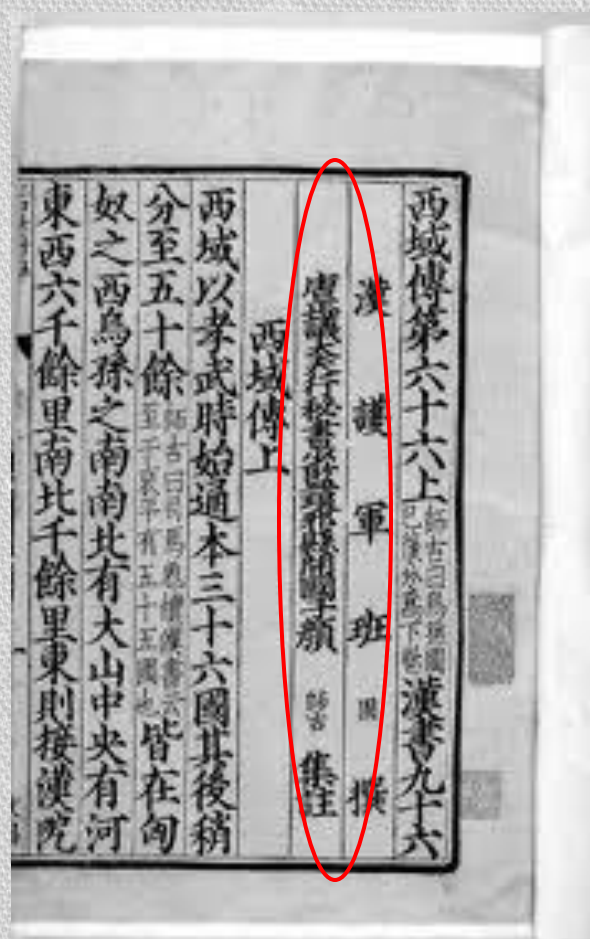 西域傳第六十六上師古曰烏孫國已後分爲下卷漢書九十六
漢護軍班固撰
唐正議大夫行秘書少監琅邪縣開國子顏師古集註
西域傳上
西域以孝武時始通本三十六國其後稍
分至五十餘師古曰司馬彪續漢書云至于哀平有五十五國也皆在匈
奴之西烏孫之南南北有大山中央有河
東西六千餘里南北千餘里東則接漢阸